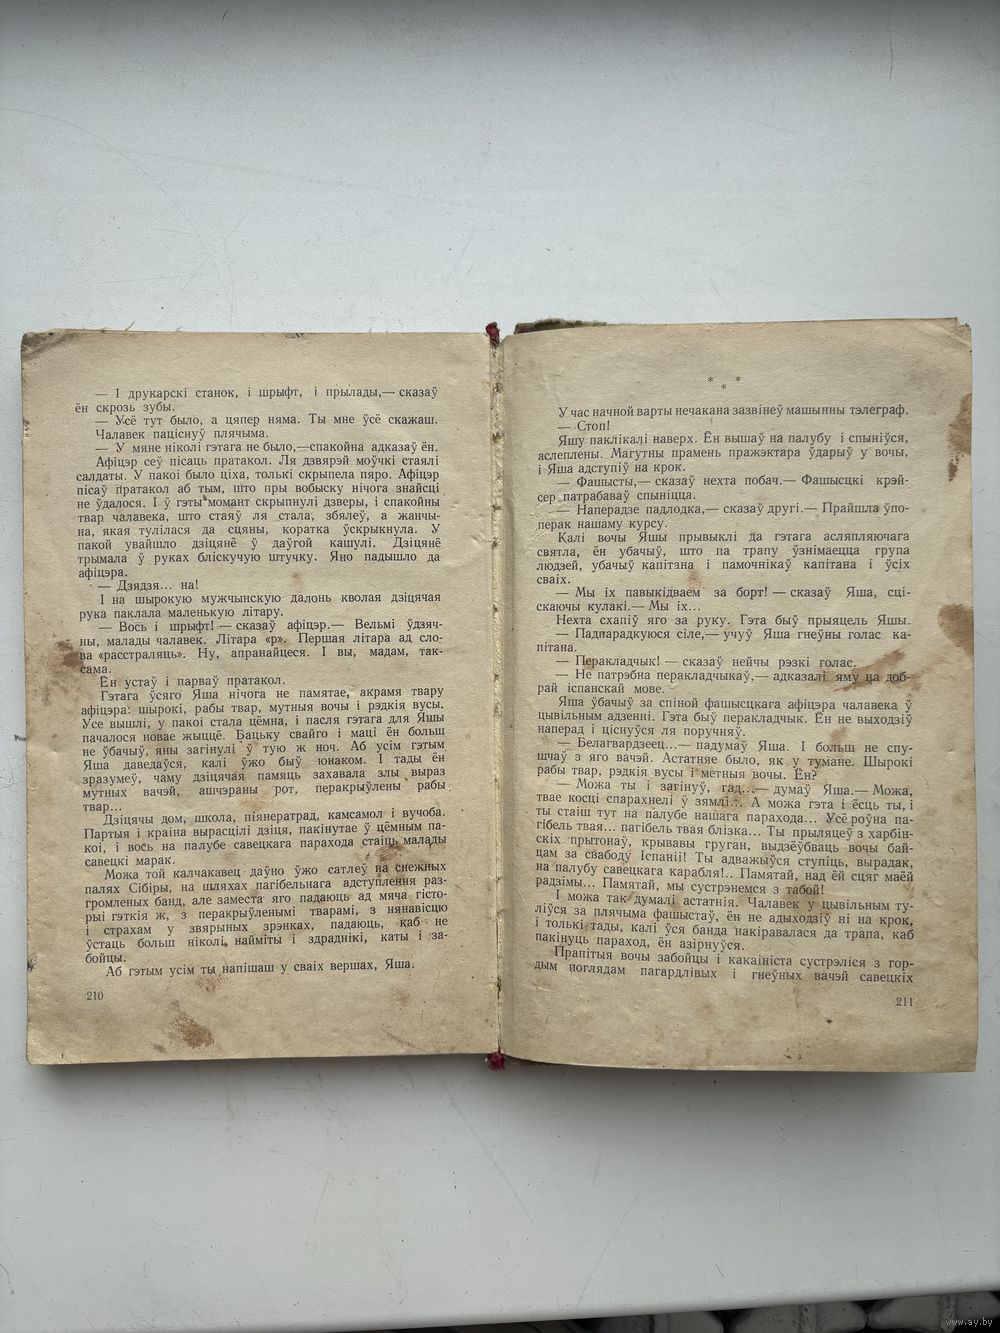 — І друкарскі станок, і шрыфт, і прылады,— сказаў
ён скрозь зубы.
— Усё тут было, а цяпер няма. Ты мне ўсё скажаш.
Чалавек паціснуў плячыма.
— У мяне ніколі гэтага не было,—спакойна адказаў ён.
Афіцэр сеў пісаць пратакол. Ля дзвярэй моўчкі стаялі
салдаты. У пакоі было ціха, толькі скрыпела пяро. Афіцэр
пісаў пратакол аб тым, што пры вобыску нічога знайсці
не ўдалося. І ў гэты момант скрыпнулі дзверы, і спакойны
твар чалавека, што стаяў ля стала, збялеў, а жанчы-
на, якая тулілася да сцяны, коратка ўскрыкнула. У
пакой увайшло дзіцянё ў даўгой кашулі. Дзіцянё
трымала ў руках бліскучую штучку. Яно падышло да
афіцэра.
— Дзядзя... на!
І на шырокую мужчынскую далонь кволая дзіцячая
рука паклала маленькую літару.
— Вось і шрыфт! — сказаў афіцэр.— Вельмі ўдзяч-
ны, малады чалавек. Літара «р». Першая літара ад сло-
ва «расстраляць». Ну, апранайцеся. І вы, мадам, так-
сама.
Ён устаў і парваў пратакол.
Гэтага ўсяго Яша нічога не памятае, акрамя твару
афіцэра: шырокі, рабы твар, мутныя вочы і рэдкія вусы.
Усе вышлі, у пакоі стала цёмна, і пасля гэтага для Яшы
пачалося новае жыццё. Бацьку свайго і маці ён больш
не ўбачыў, яны загінулі ў тую ж ноч. Аб усім гэтым
Яша даведаўся, калі ўжо быў юнаком. І тады ён
зразумеў, чаму дзіцячая памяць захавала злы выраз
мутных вачэй, ашчэраны рот, перакрыўлены рабы
твар...
Дзіцячы дом, школа, піянератрад, камсамол і вучоба.
Партыя і краіна вырасцілі дзіця, пакінутае ў цёмным па-
коі, і вось на палубе савецкага парахода стаіць малады
савецкі марак.
Можа той калчакавец даўно ўжо сатлеў на снежных
палях Сібіры, на шляхах пагібельнага адступлення раз-
громленых банд, але заместа яго падаюць ад мяча гісто-
рыі гэткія ж, з перакрыўленымі тварамі, з нянавісцю
і страхам у звярыных зрэнках, падаюць, каб не
ўстаць больш ніколі, найміты і здраднікі, каты і за-
бойцы.
Аб гэтым усім ты напішаш у сваіх вершах, Яша.
210
* * *
У час начной варты нечакана зазвінеў машынны тэлеграф.
— Стоп!
Яшу паклікалі наверх. Ён вышаў на палубу і спыніўся,
аслеплены. Магутны прамень пражэктара ўдарыў у вочы,
і Яша адступіў на крок.
— Фашысты,— сказаў нехта побач.— Фашысцкі крэй-
сер патрабаваў спыніцца.
— Наперадзе падлодка,— сказаў другі.— Прайшла ўпо-
перак нашаму курсу.
Калі вочы Яшы прывыклі да гэтага асляпляючага
святла, ён убачыў, што па трапу ўзнімаецца група
людзей, убачыў капітана і памочнікаў капітана і ўсіх
сваіх.
— Мы іх павыкідваем за борт! — сказаў Яша, сці-
скаючы кулакі.— Мы іх...
Нехта схапіў яго за руку. Гэта быў прыяцель Яшы.
— Падпарадкуюся сіле,— учуў Яша гнеўны голас ка-
пітана.
— Перакладчык! — сказаў нейчы рэзкі голас.
— Не патрэбна перакладчыкаў,— адказалі яму на доб-
рай іспанскай мове.
Яша ўбачыў за спіной фашысцкага афіцэра чалавека ў
цывільным адзенні. Гэта быў перакладчык. Ён не выходзіў
наперад і ціснуўся ля поручняў.
— Белагвардзеец...— падумаў Яша. І больш не спу-
шчаў з яго вачэй. Астатняе было, як у тумане. Шырокі
рабы твар, рэдкія вусы і метныя вочы. Ён?
— Можа ты і загінуў, гад...— думаў Яша.— Можа,
твае косці спарахнелі ў зямлі... А можа гэта і ёсць ты, і
ты стаіш тут на палубе нашага парахода... Усё роўна па-
гібель твая... пагібель твая блізка... Ты прыляцеў з харбін-
скіх прытонаў, крывавы груган, выдзёўбваць вочы бай-
цам за свабоду Іспаніі! Ты адважыўся ступіць, вырадак,
на палубу савецкага карабля!.. Памятай, над ёй сцяг маёй
радзімы... Памятай, мы сустрэнемся з табой!
І можа так думалі астатнія. Чалавек у цывільным ту-
ліўся за плячыма фашыстаў, ён не адыходзіў ні на крок,
і толькі тады, калі ўся банда накіравалася да трапа, каб
пакінуць параход, ён азірнуўся.
Прапітыя вочы забойцы і какаініста сустрэліся з гор-
дым поглядам пагардлівых і гнеўных вачэй савецкіх
211
www.ay.by